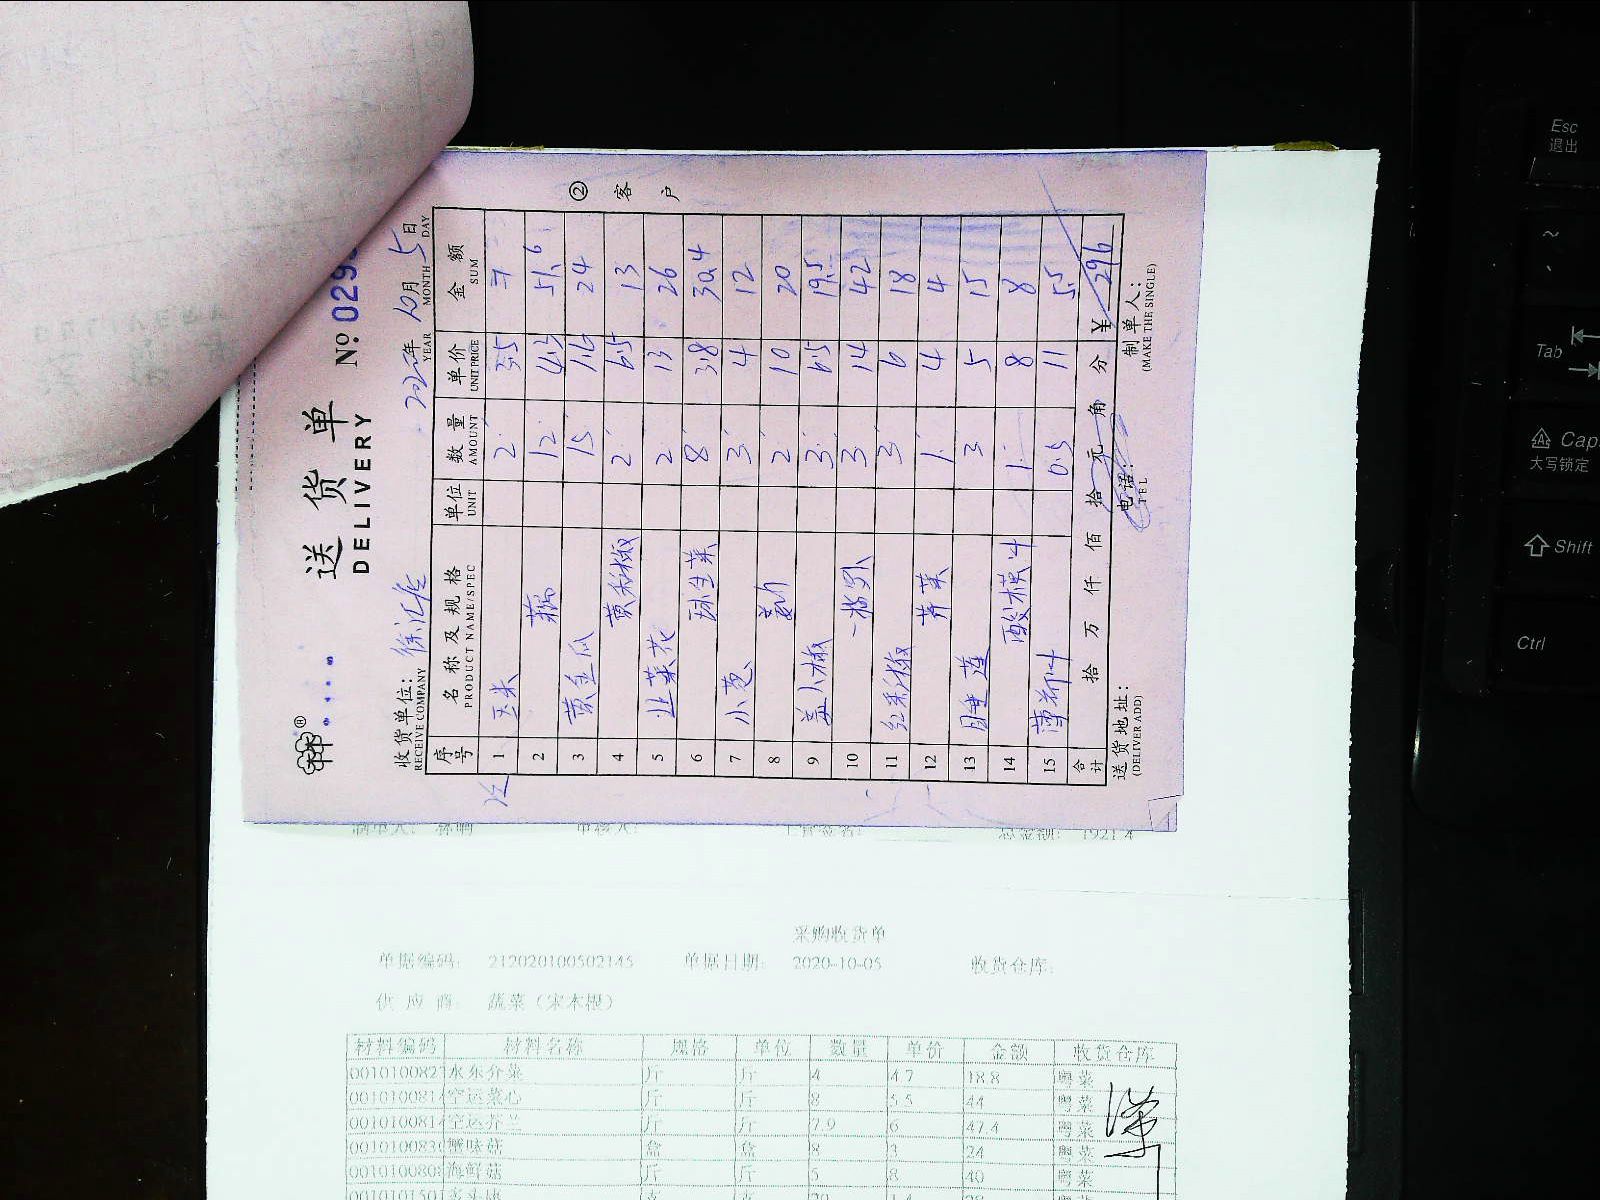 送 货 单
DELIVERY
№ 029
收货单位：
RECEIVE COMPANY
2020年 10月 5日
YEAR MONTH DAY
② 客 户
序号 名称及规格 单位 数量 单价 金额
PRODUCT NAME/SPEC UNIT AMOUNT UNIT PRICE SUM
1 玉米 2 3.5 7
2 藕 12 4.3 51.6
3 黄金瓜 15 1.6 24
4 黄彩椒 2 6.5 13
5 韭菜花 2 13 26
6 球生菜 8 3.8 30.4
7 小葱 3 4 12
8 姜 2 10 20
9 美人椒 3 6.5 19.5
10 3 14 42
11 红彩椒 3 6 18
12 芹菜 1 4 4
13 3 5 15
14 酸模叶 1 8 8
15 薄荷叶 0.5 11 5.5
合计 拾 万 仟 佰 拾 元 角 分 ¥ 296
送货地址： 电话： 制单人：
(DELIVER ADD) TEL (MAKE THE SINGLE)
制单人： 审核人： 主管签名： 总金额： 1921.4
采购收货单
单据编码： 212020100502145 单据日期： 2020-10-05 收货仓库：
供 应 商： 蔬菜（宋本根）
材料编码 材料名称 规格 单位 数量 单价 金额 收货仓库
001010082 水东介菜 斤 斤 4 4.7 18.8 粤菜
001010081 空运菜心 斤 斤 8 5.5 44 粤菜
001010081 空运芥兰 斤 斤 7.9 6 47.4 粤菜
001010083 蟹味菇 盒 盒 8 3 24 粤菜
001010080 海鲜菇 斤 斤 5 8 40 粤菜
Esc
退出
~
Tab
Cap
大写锁定
Shift
Ctrl